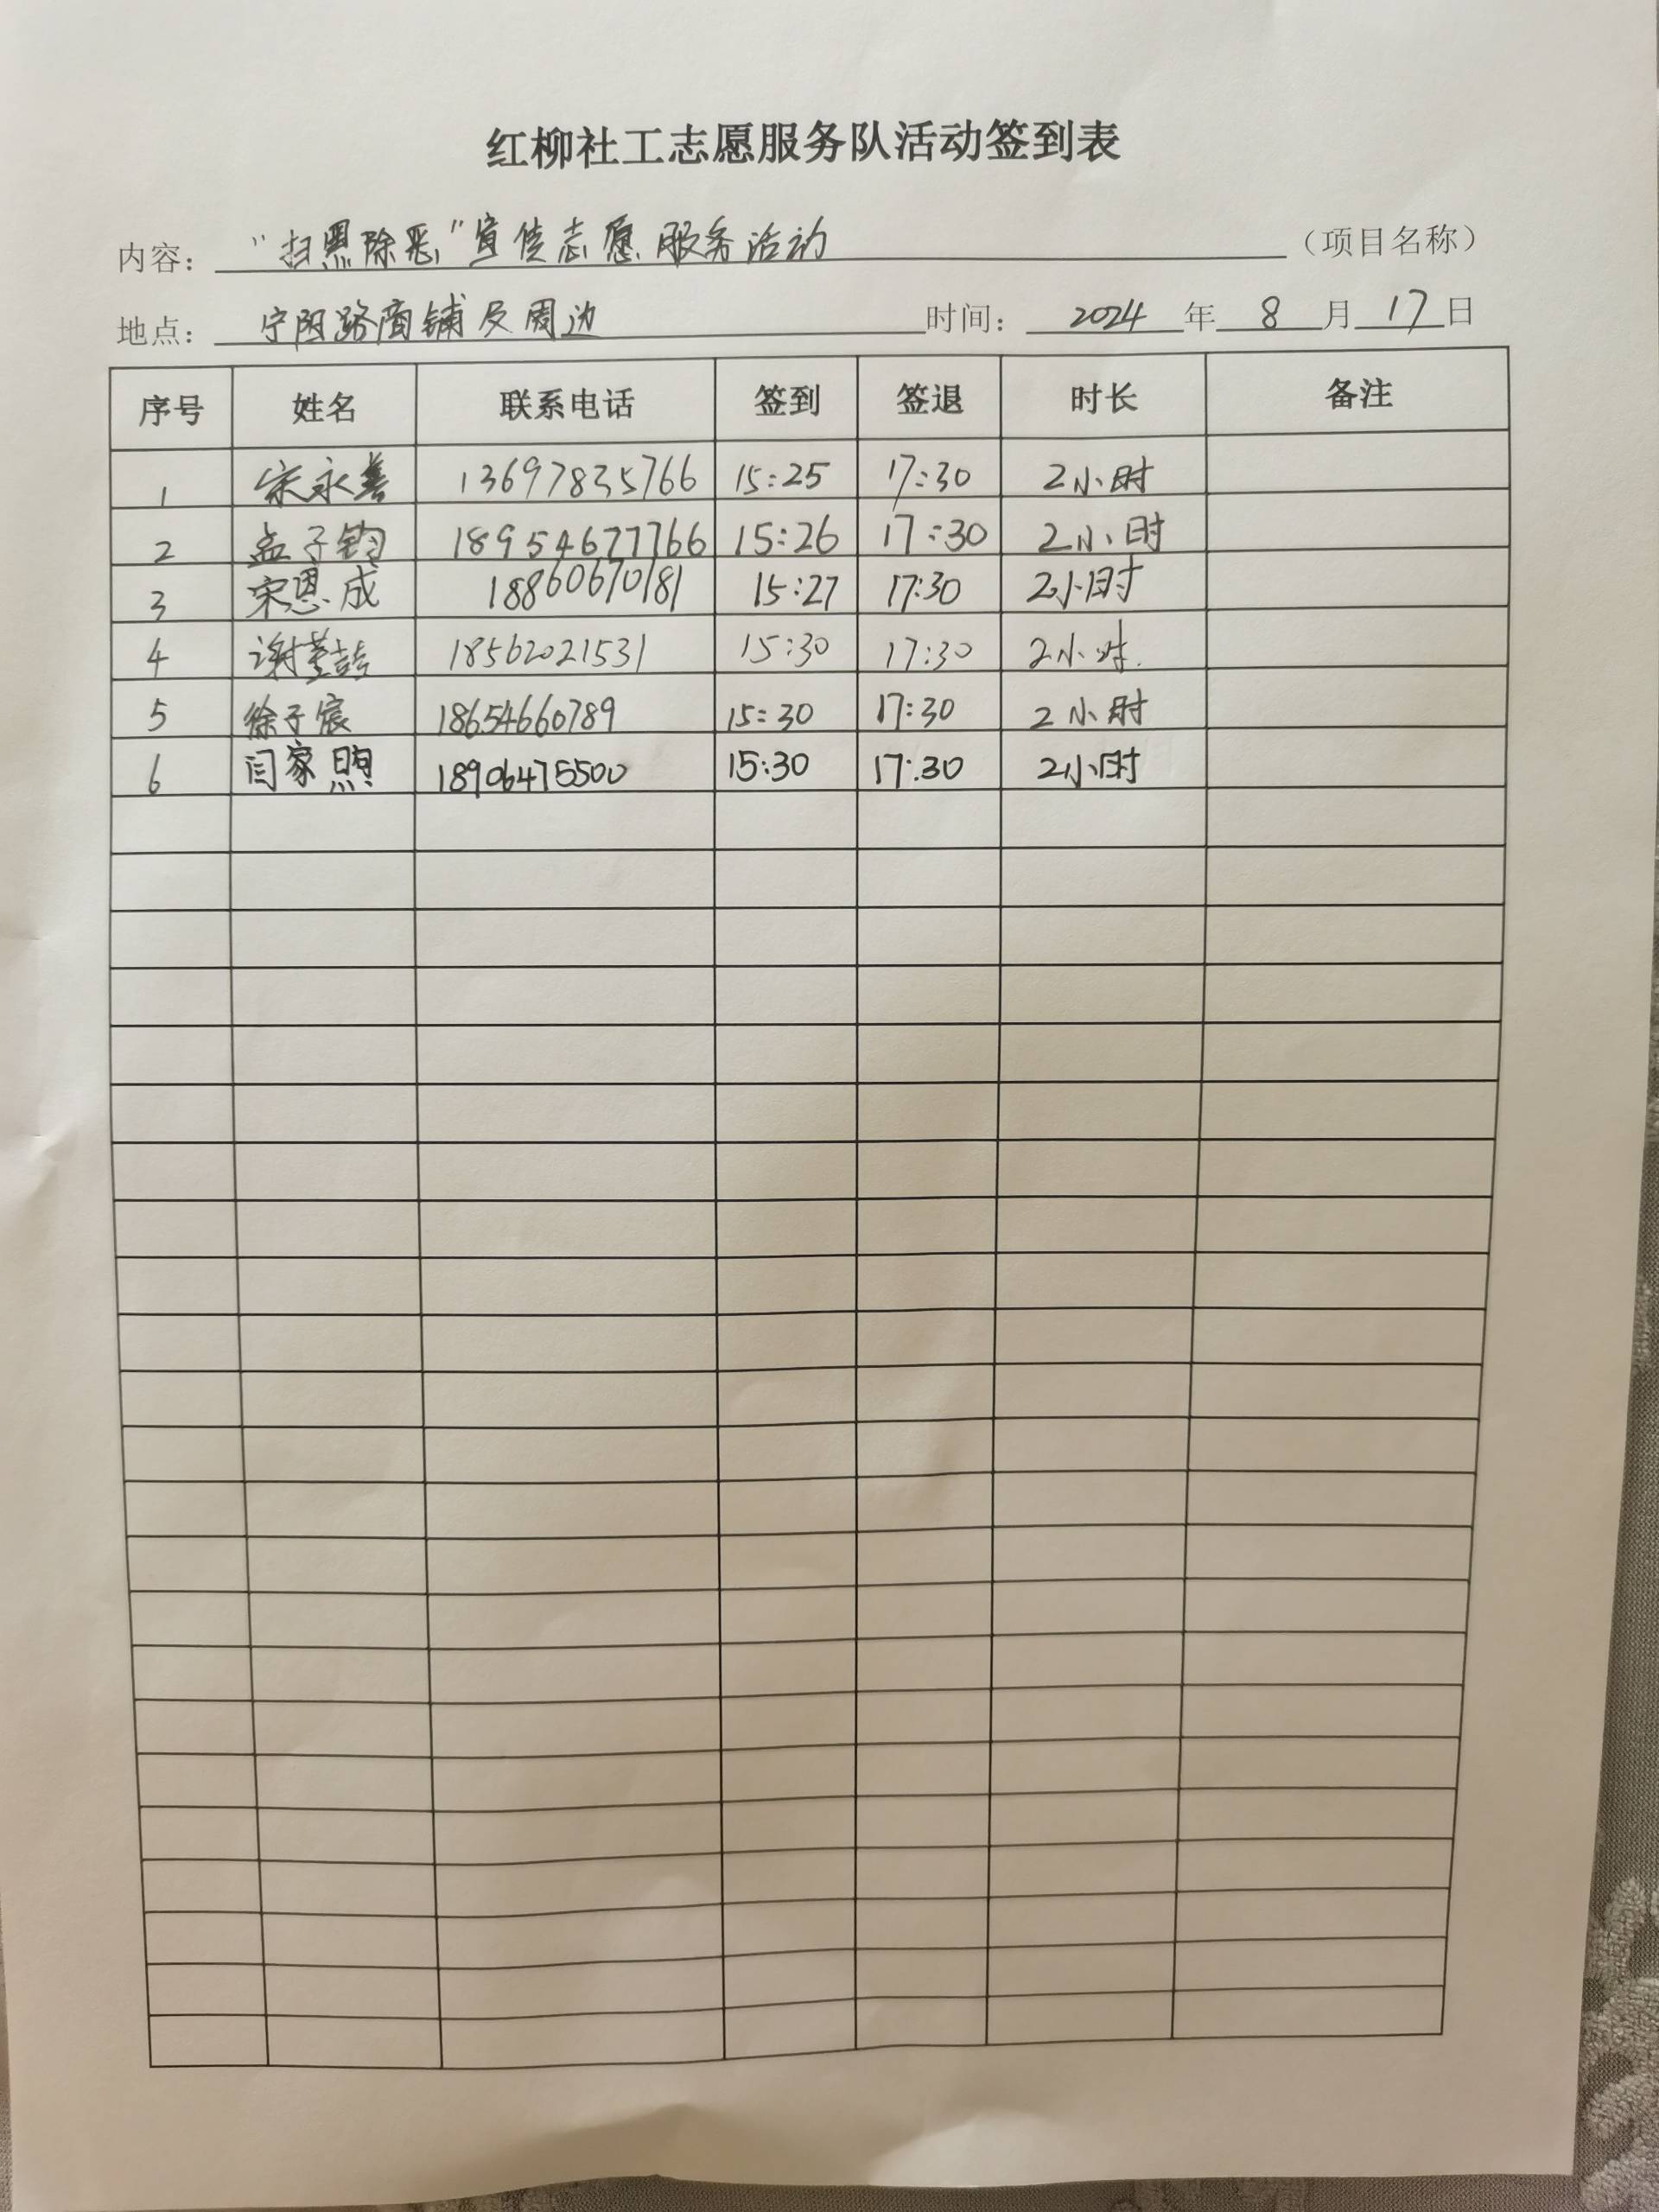 红柳社工志愿服务队活动签到表
内容： “扫黑除恶”宣传志愿服务活动 （项目名称）
地点： 宁阳路商铺及周边 时间： 2024 年 8 月 17 日
序号 姓名 联系电话 签到 签退 时长 备注
1 宋永善 13697835766 15:25 17:30 2小时
2 孟子钧 18954677766 15:26 17:30 2小时
3 宋恩成 18860670181 15:27 17:30 2小时
4 谢 18562021531 15:30 17:30 2小时.
5 徐子宸 18654660789 15:30 17:30 2小时
6 闫家煦 18906475500 15:30 17:30 2小时